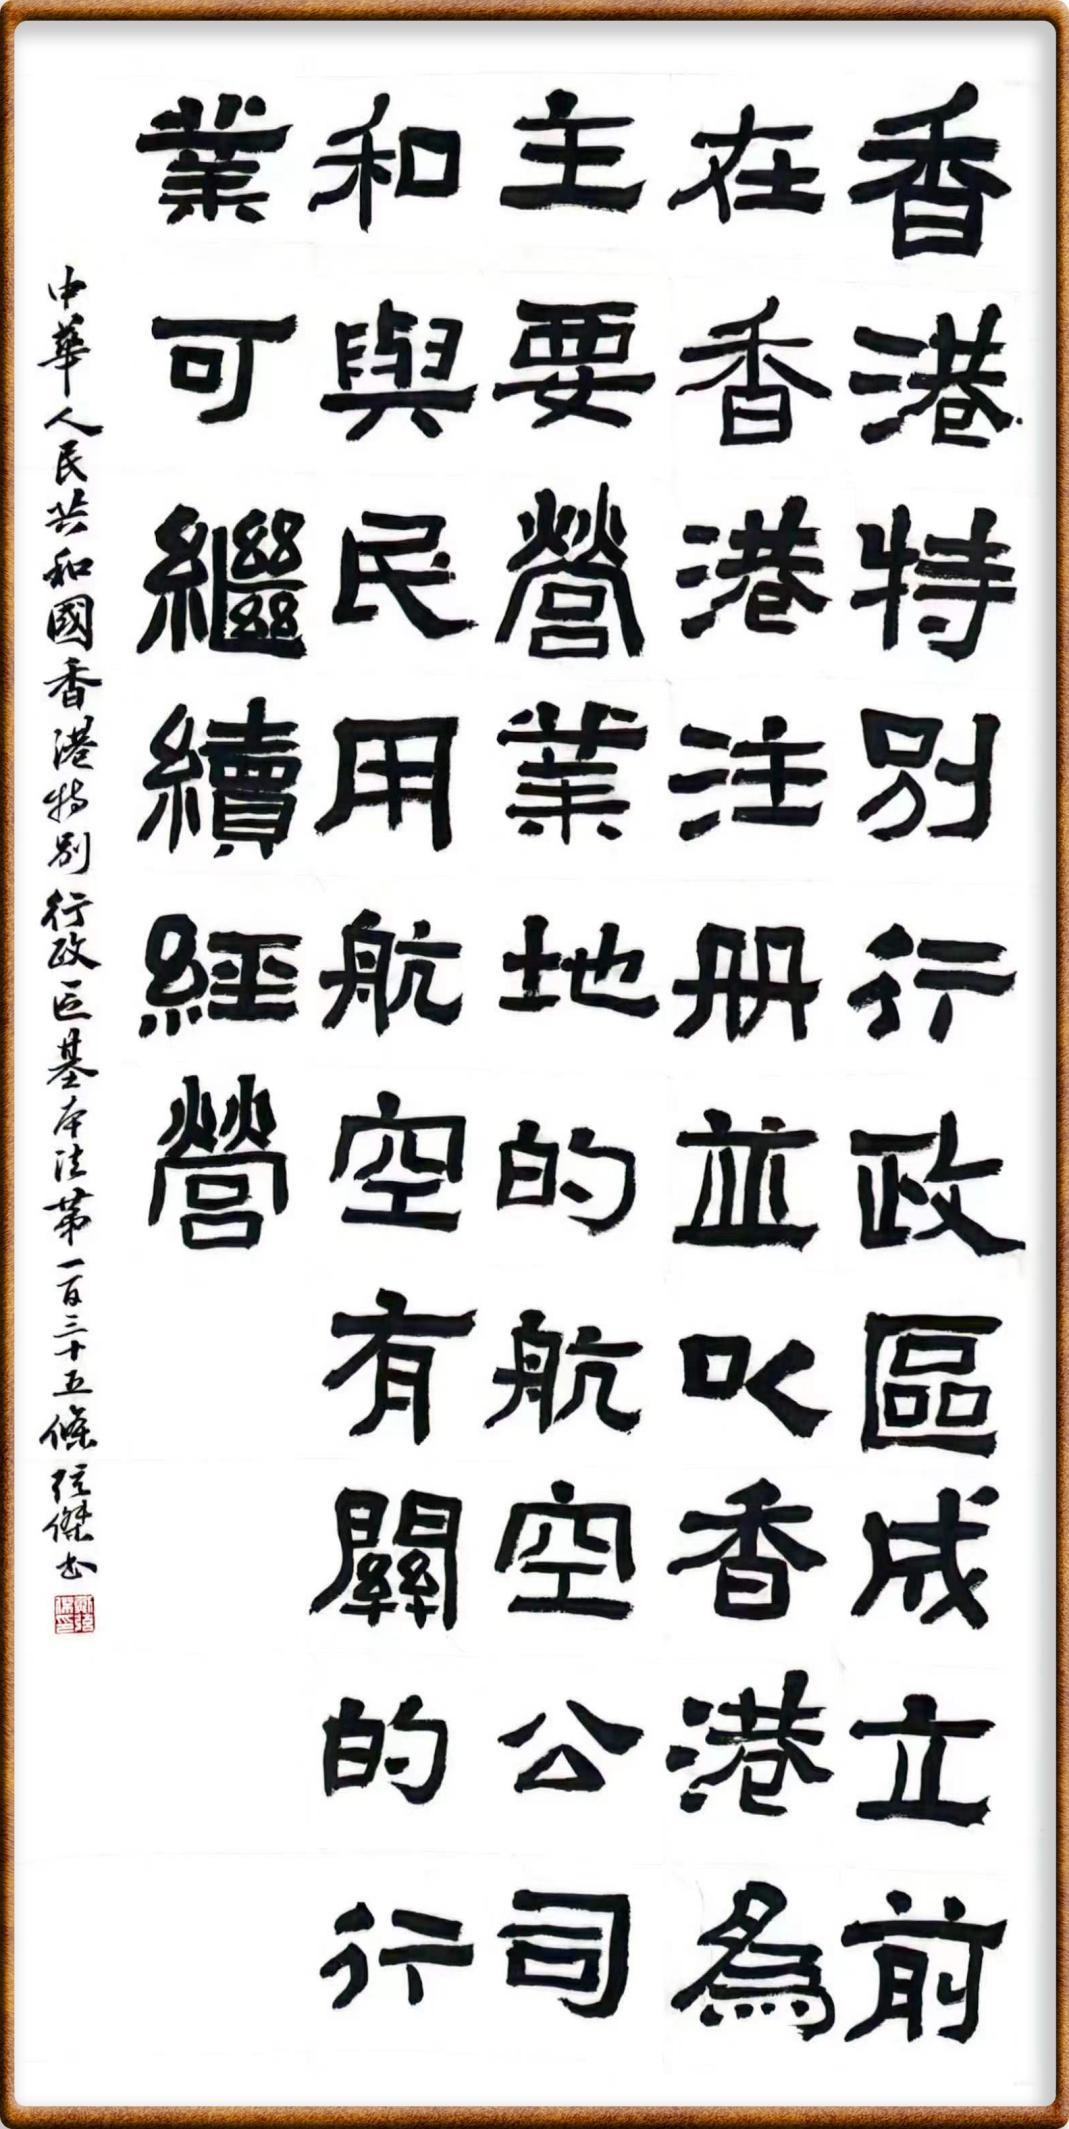 香港特別行政區成立前
在香港注册並以香港為
主要營業地的航空公司
和與民用航空有關的行
業可繼續經營
中華人民共和國香港特别行政区基本法第一百三十五條 弦傑书